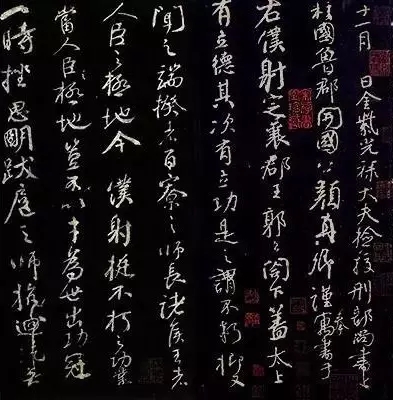 十一月 日金紫光禄大夫檢校刑部尚書上
柱國魯郡開國公顏真卿謹奉寓書于
右僕射定襄郡王郭公閤下蓋太上
有立德其次有立功是之謂不朽抑又
聞之端揆者百寮之師長諸侯王者
人臣之極地今 僕射挺不朽之功業
當人臣極地豈不以才為世出功冠
一時挫思明跋扈之師抗迴紇無